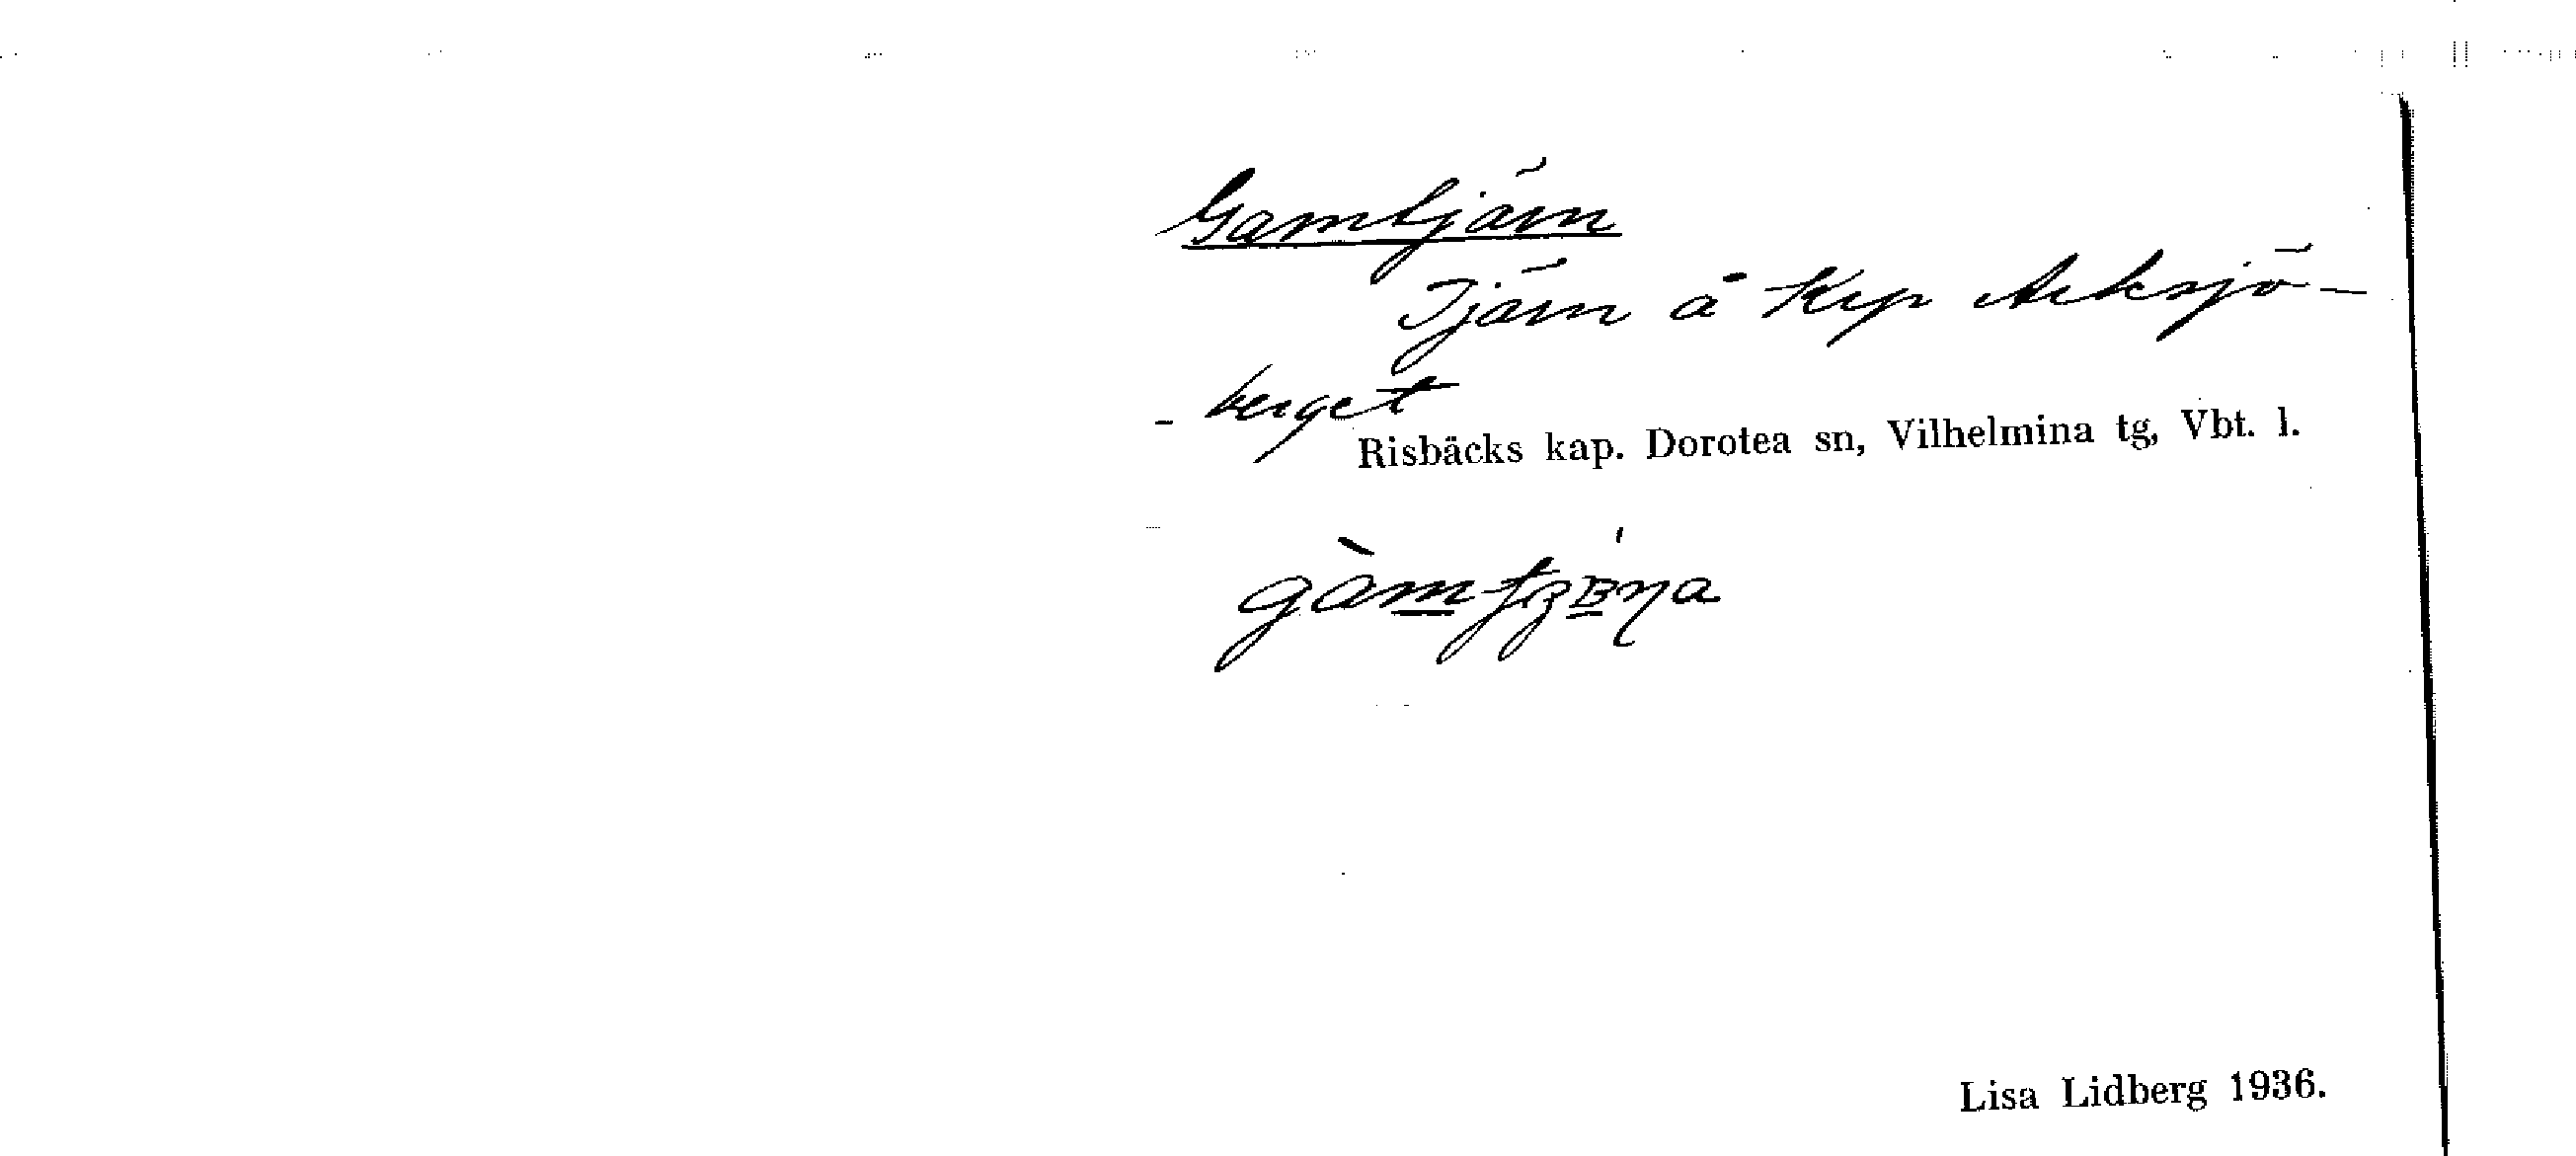 Gamtjärn
Tjärn å Krp Arksjö-
- berget
Risbäcks kap. Dorotea sn, Vilhelmina tg, Vbt. l.
Lisa Lidberg 1936.